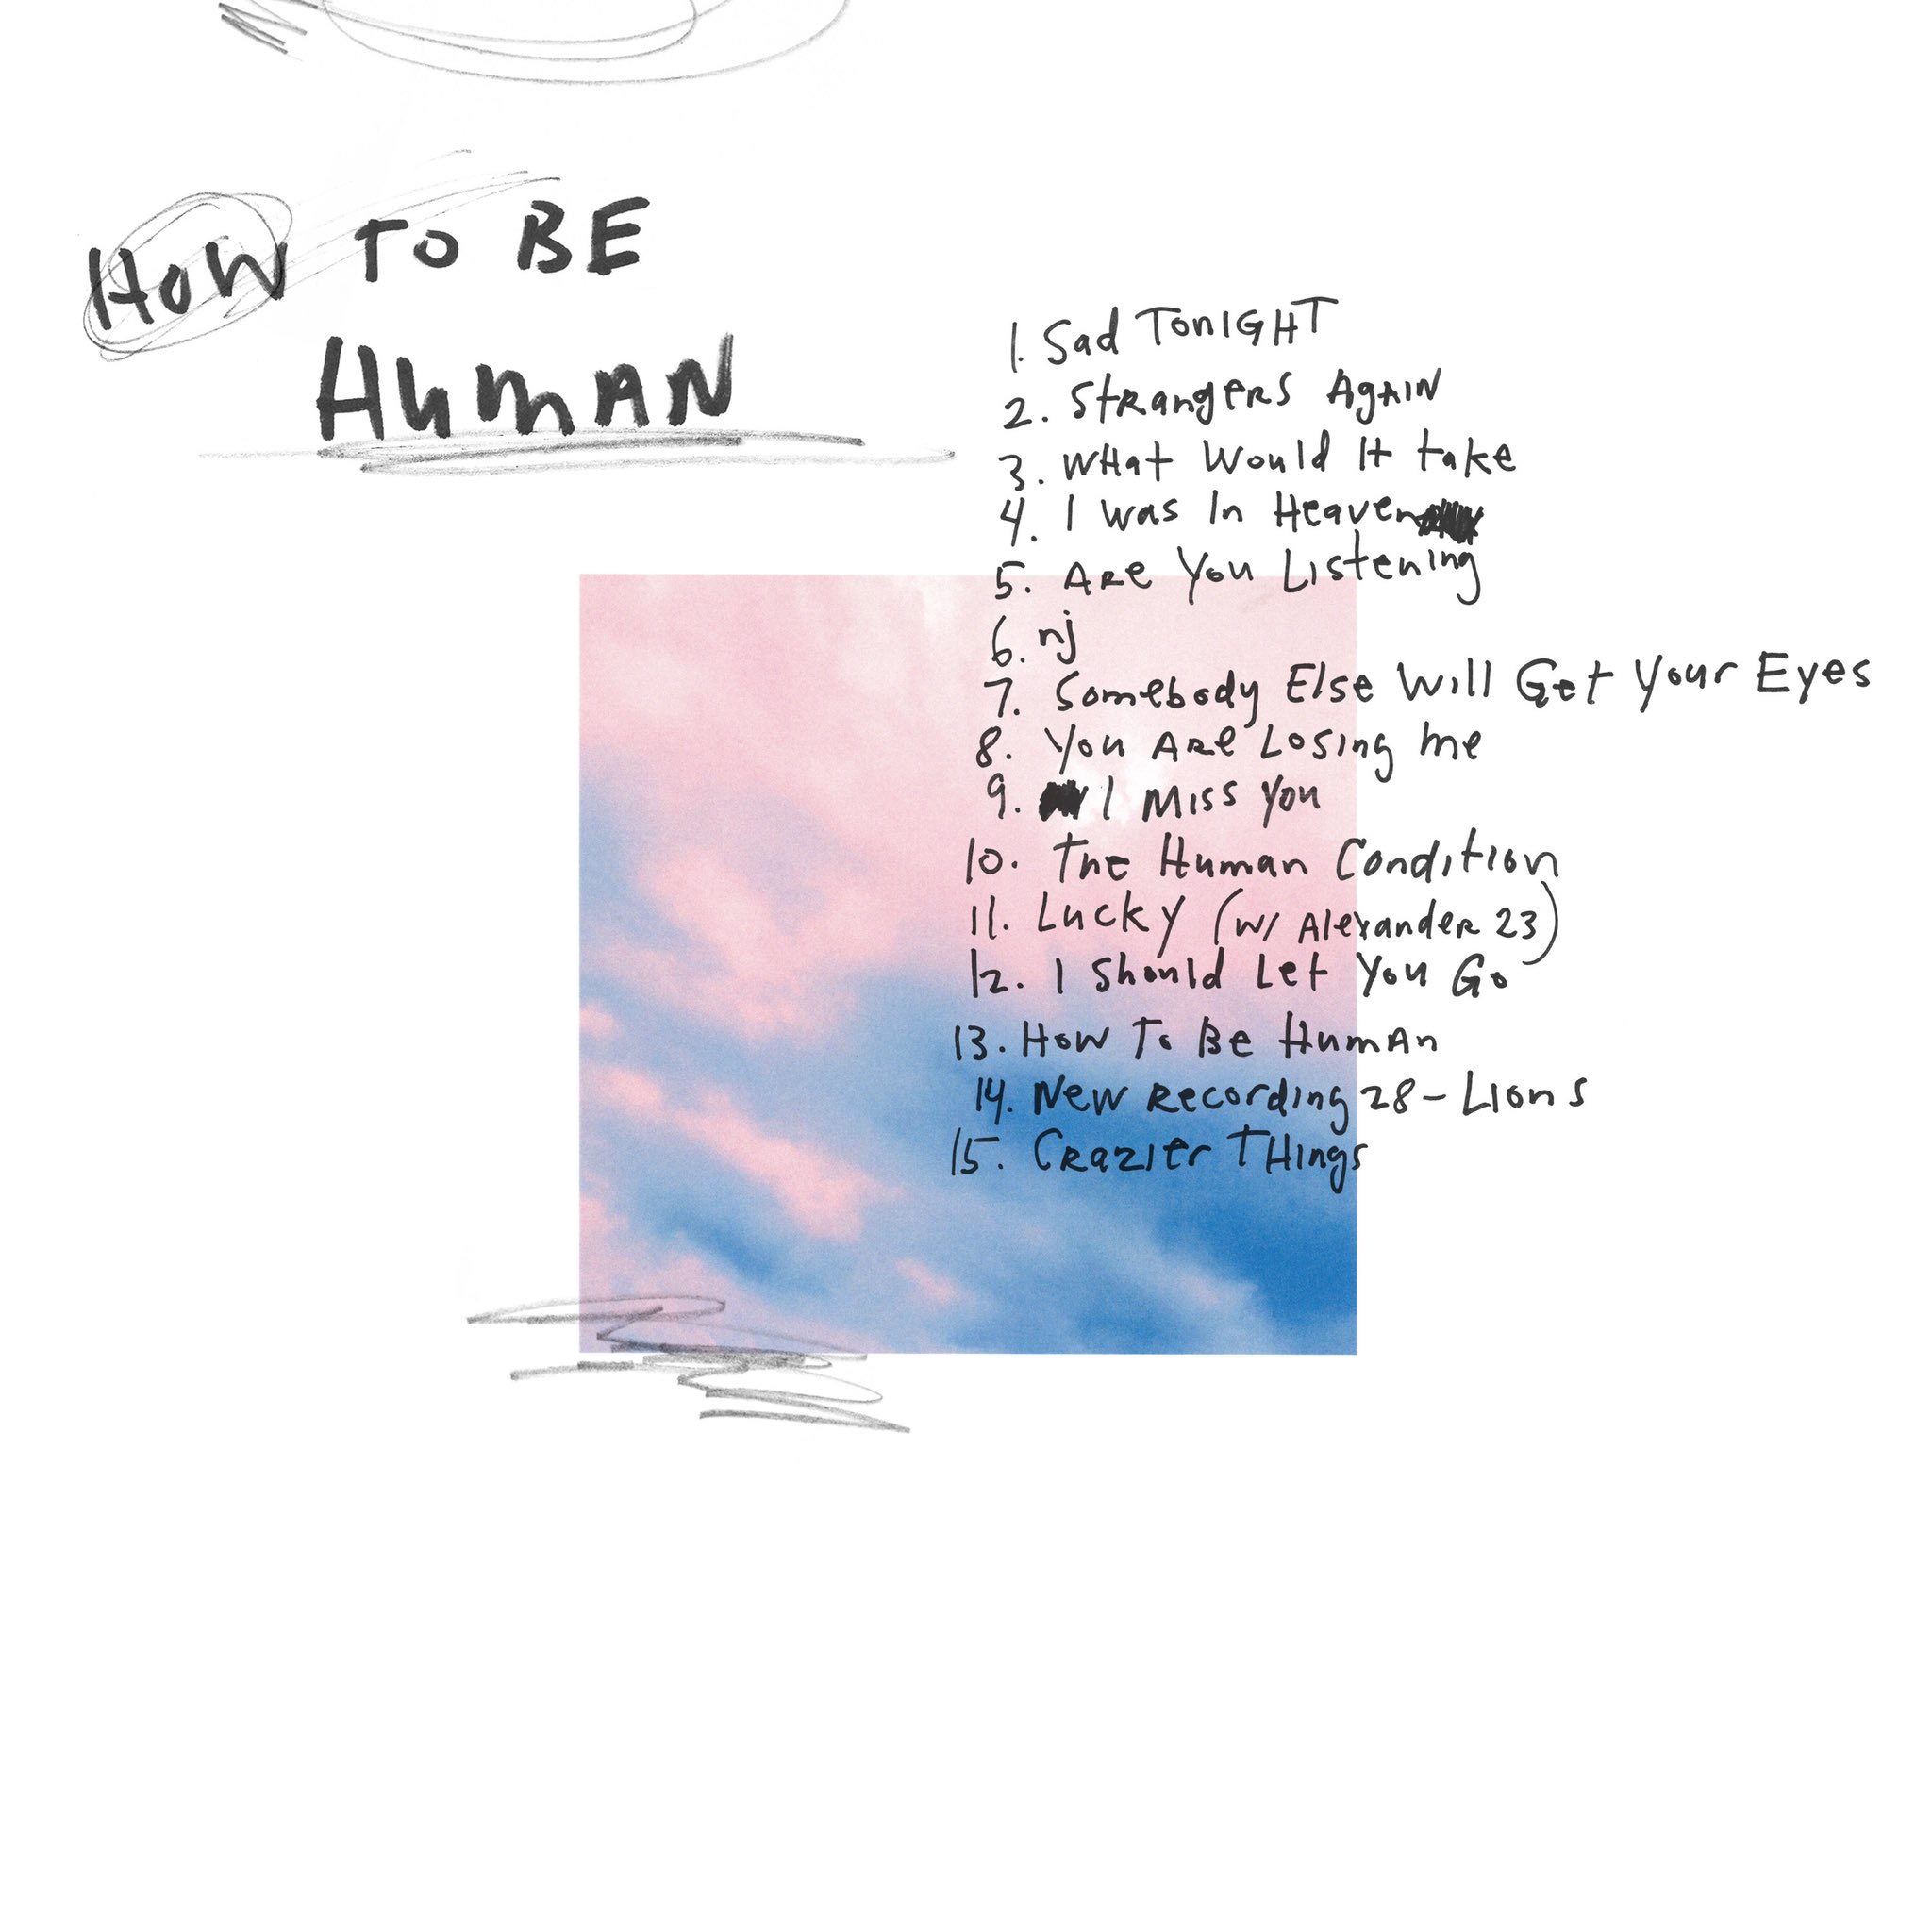 HOW TO BE
HUMAN
1. Sad TONIGHT
2. Strangers Again
3. What Would It take
4. I was In Heaven
5. Are You Listening
6. nj
7. Somebody Else Will Get Your Eyes
8. You Are Losing me
9. I Miss You
10. The Human Condition
11. Lucky (w/ Alexander 23)
12. I Should Let You Go
13. How To Be Human
14. New Recording 28 - Lions
15. Crazier Things